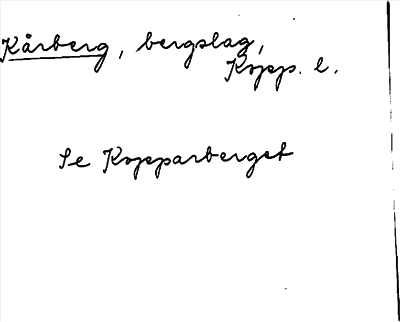 Kårberg, bergslag,
Kopp. l.
Se Kopparberget